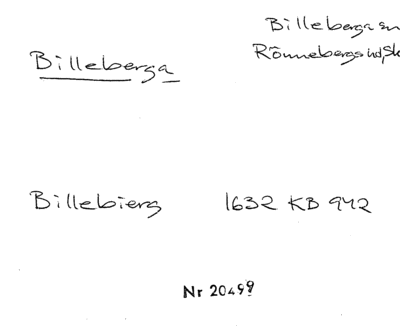 Billeberga sn
Rönnebergs hd, Sk
Billeberga
Billebierg 1632 KB 942
Nr 20499